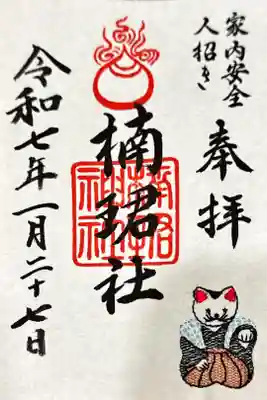 家内安全
人招き
奉拝
楠珺社
楠珺社神社
令和七年一月二十七日